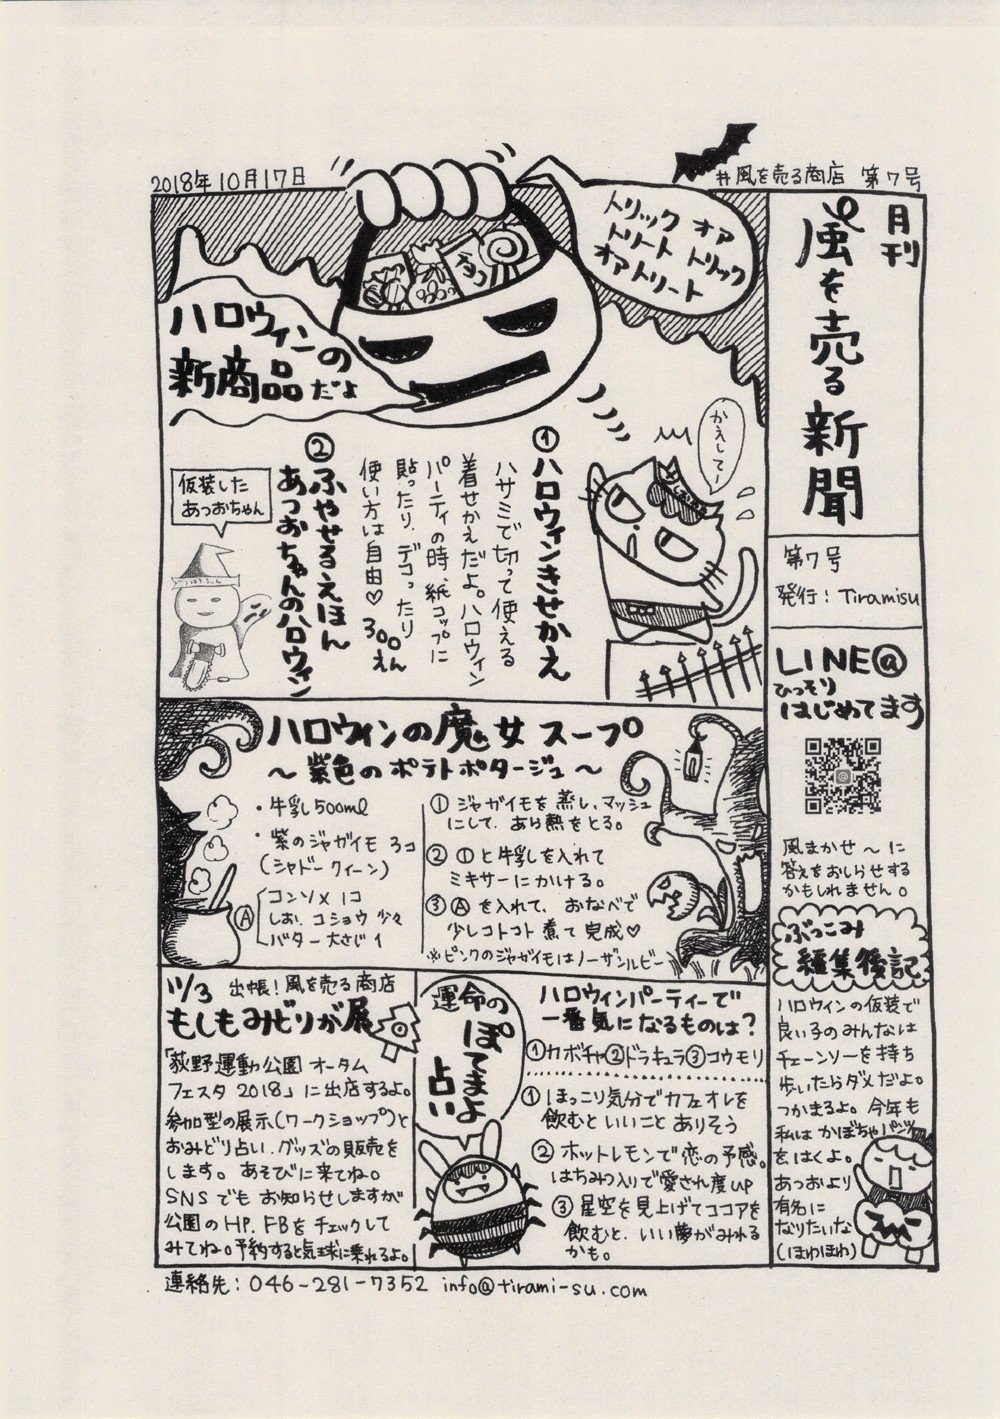 2018年10月17日
#風を売る商店 第7号
月刊
風を売る新聞
第7号
発行:Tiramisu
トリック オア
トリート トリック
オア トリート
チョコ
ハロウィンの
新商品だよ
①ハロウィンきせかえ
ハサミで切って使える
着せかえだよ。ハロウィン
パーティの時、紙コップに
貼ったり、デコったり
使い方は自由♡ 300えん
②ふやせるえほん
あつおちゃんのハロウィン
かえしてー
仮装した
あつおちゃん
LINE@
ひっそり
はじめてます
風まかせ~に
答えをおしらせする
かもしれません。
ハロウィンの魔女スープ
~紫色のポテトポタージュ~
・牛乳500ml
・紫のジャガイモ 3コ
(シャドークィーン)
Ⓐ
コンソメ 1コ
しお、コショウ少々
バター大さじ1
① ジャガイモを蒸し、マッシュ
にして、あら熱をとる。
② ①と牛乳を入れて
ミキサーにかける。
③ Ⓐを入れて、おなべで
少しコトコト煮て完成♡
※ピンクのジャガイモはノーザンルビー
11/3 出帳!風を売る商店
もしもみどりが展
「荻野運動公園オータム
フェスタ2018」に出店するよ。
参加型の展示(ワークショップ)と
おみどり占い、グッズの販売を
します。あそびに来てね。
SNSでもお知らせしますが
公園のHP、FBをチェックして
みてね。予約すると気球に乗れるよ。
運命の
ぽてまよ
占い
ハロウィンパーティーで
一番気になるものは?
①カボチャ②ドラキュラ③コウモリ
① ほっこり気分でカフェオレを
飲むといいことありそう
② ホットレモンで恋の予感。
はちみつ入りで愛され度up
③ 星空を見上げてココアを
飲むと、いい夢がみれる
かも。
ぶっこみ
編集後記
ハロウィンの仮装で
良い子のみんなは
チェーンソーを持ち
歩いたらダメだよ。
つかまるよ。今年も
私はかぼちゃパンツ
をはくよ。
あつおより
有名に
なりたいな
(ほわほわ)
連絡先:046-281-7352 info@tirami-su.com